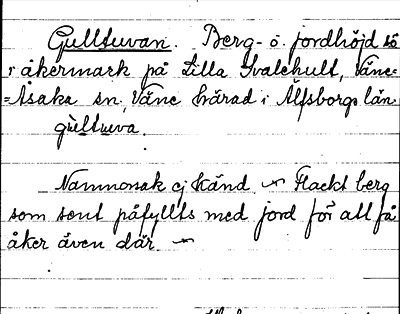 Gulltuvan. Berg- o. jordhöjd sö
i åkermark på Lilla Svalehult, Väne-
=Åsaka sn, Väne härad i Älfsborgs län.
gùltuva.
Namnorsak ej känd. ~ Flackt berg
som sent påfyllts med jord för att få
åker även där. ~